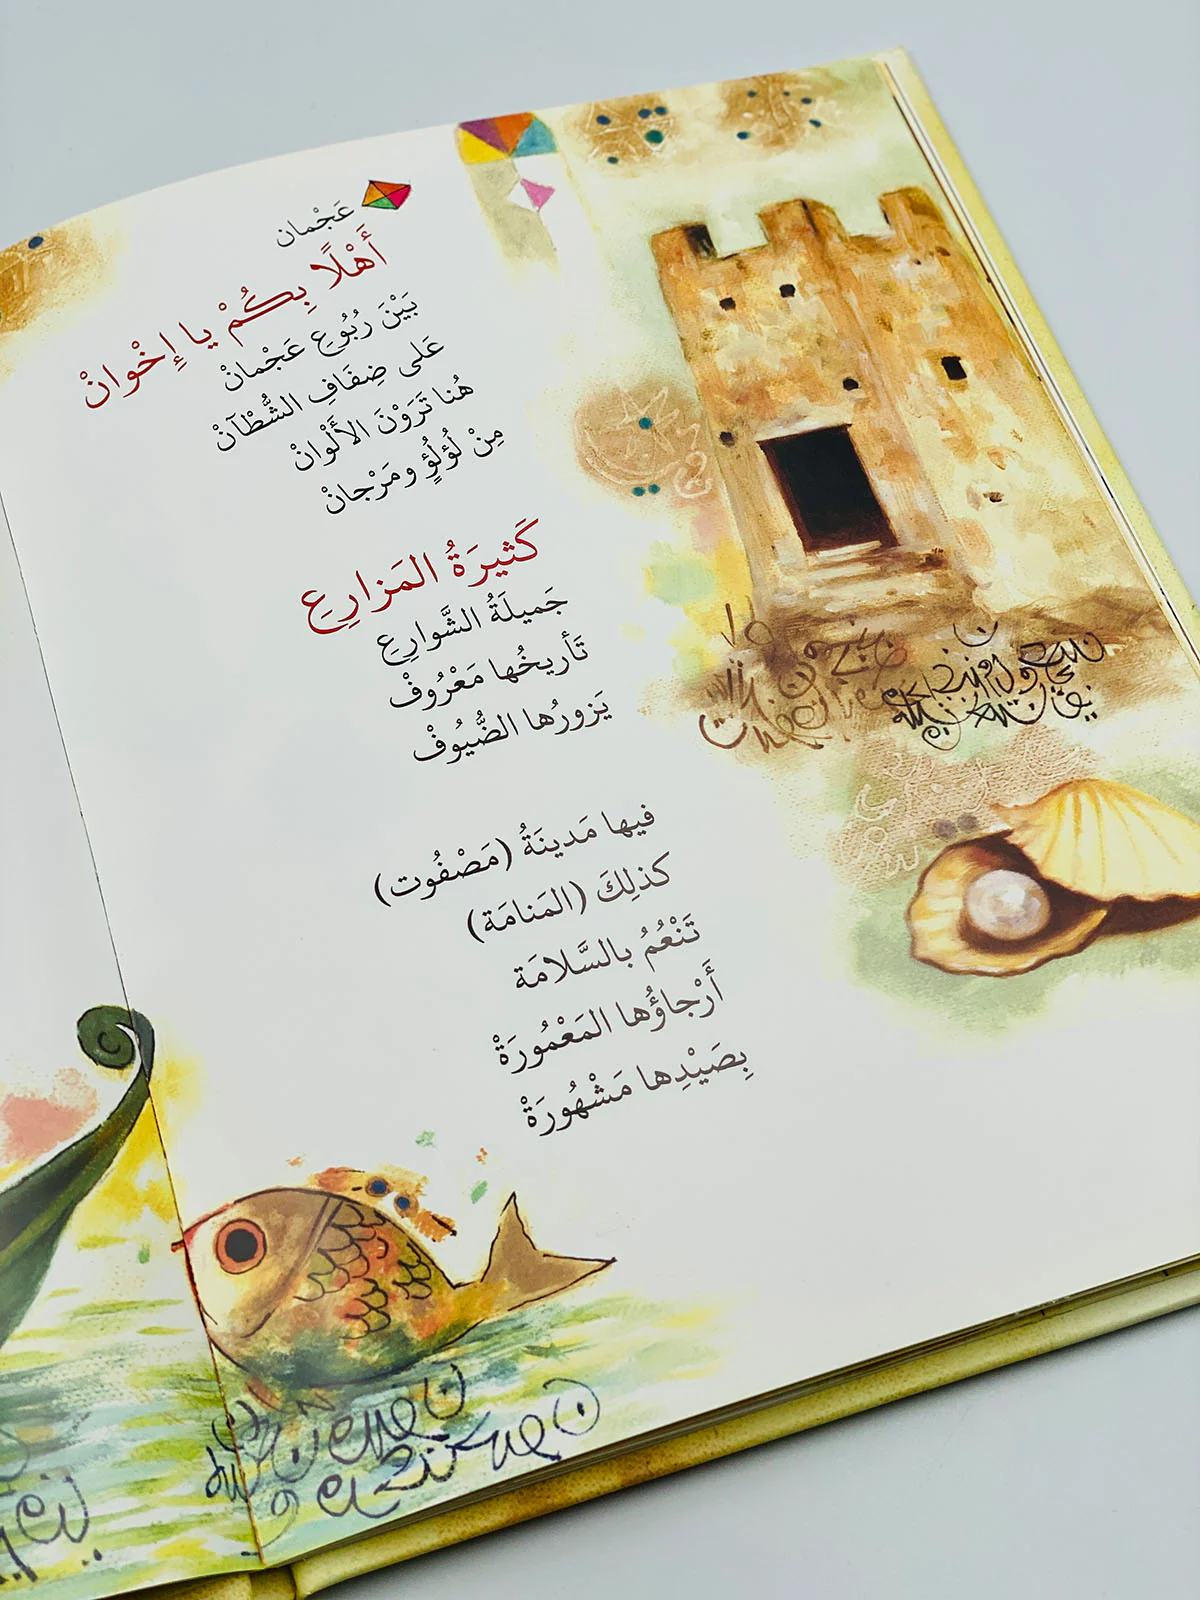 عَجْمان
أَهْلًا بِكُمْ يا إِخْوانْ
بَيْنَ رُبُوعِ عَجْمانْ
عَلى ضِفَافِ الشُّطْآنْ
هُنا تَرَوْنَ الأَلْوانْ
مِنْ لُؤلُؤٍ ومَرْجانْ
كَثيرَةُ المَزارِعِ
جَميلَةُ الشَّوارِعِ
تَأريخُها مَعْرُوفْ
يَزورُها الضُّيُوفْ
فيها مَدينَةُ (مَصْفُوت)
كذلِكَ (المَنامَة)
تَنْعُمُ بالسَّلامَة
أَرْجاؤُها المَعْمُورَةْ
بِصَيْدِها مَشْهُورَةْ